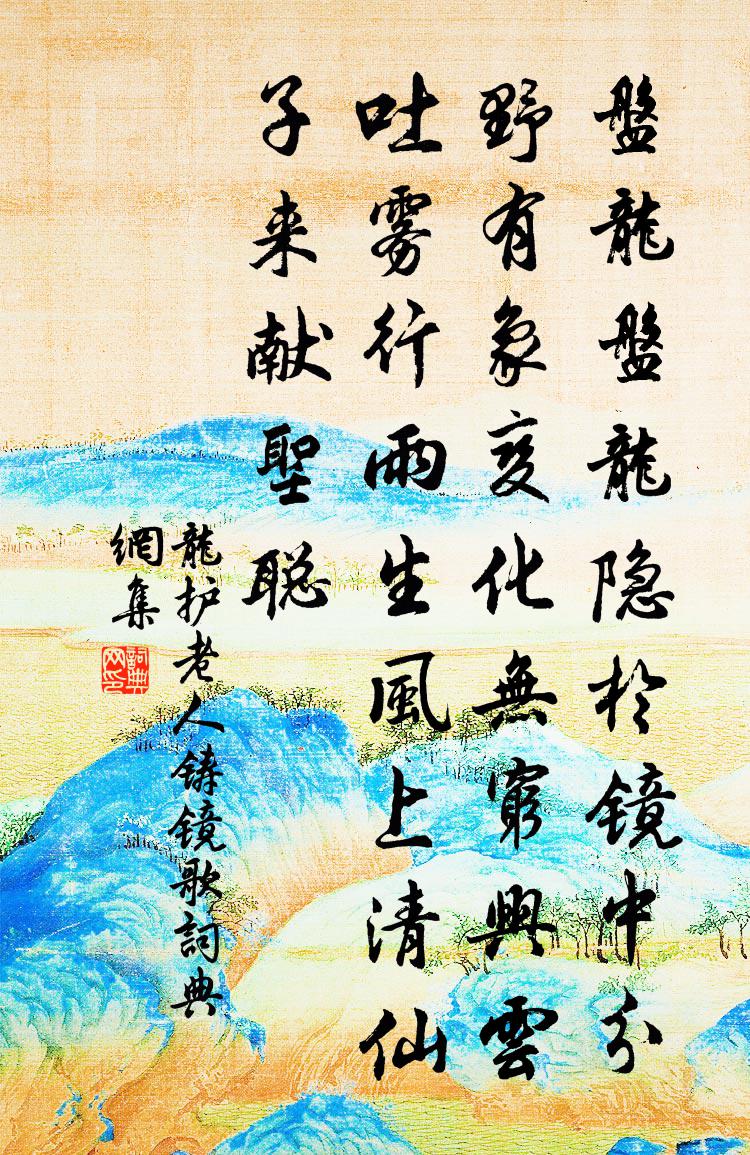 盤龍盤龍隐於镜中分
野有象变化無窮興雲
吐雾行雨生風上清仙
子来献聖聪
龍护老人铸镜歌詞典
網集
詞典网印